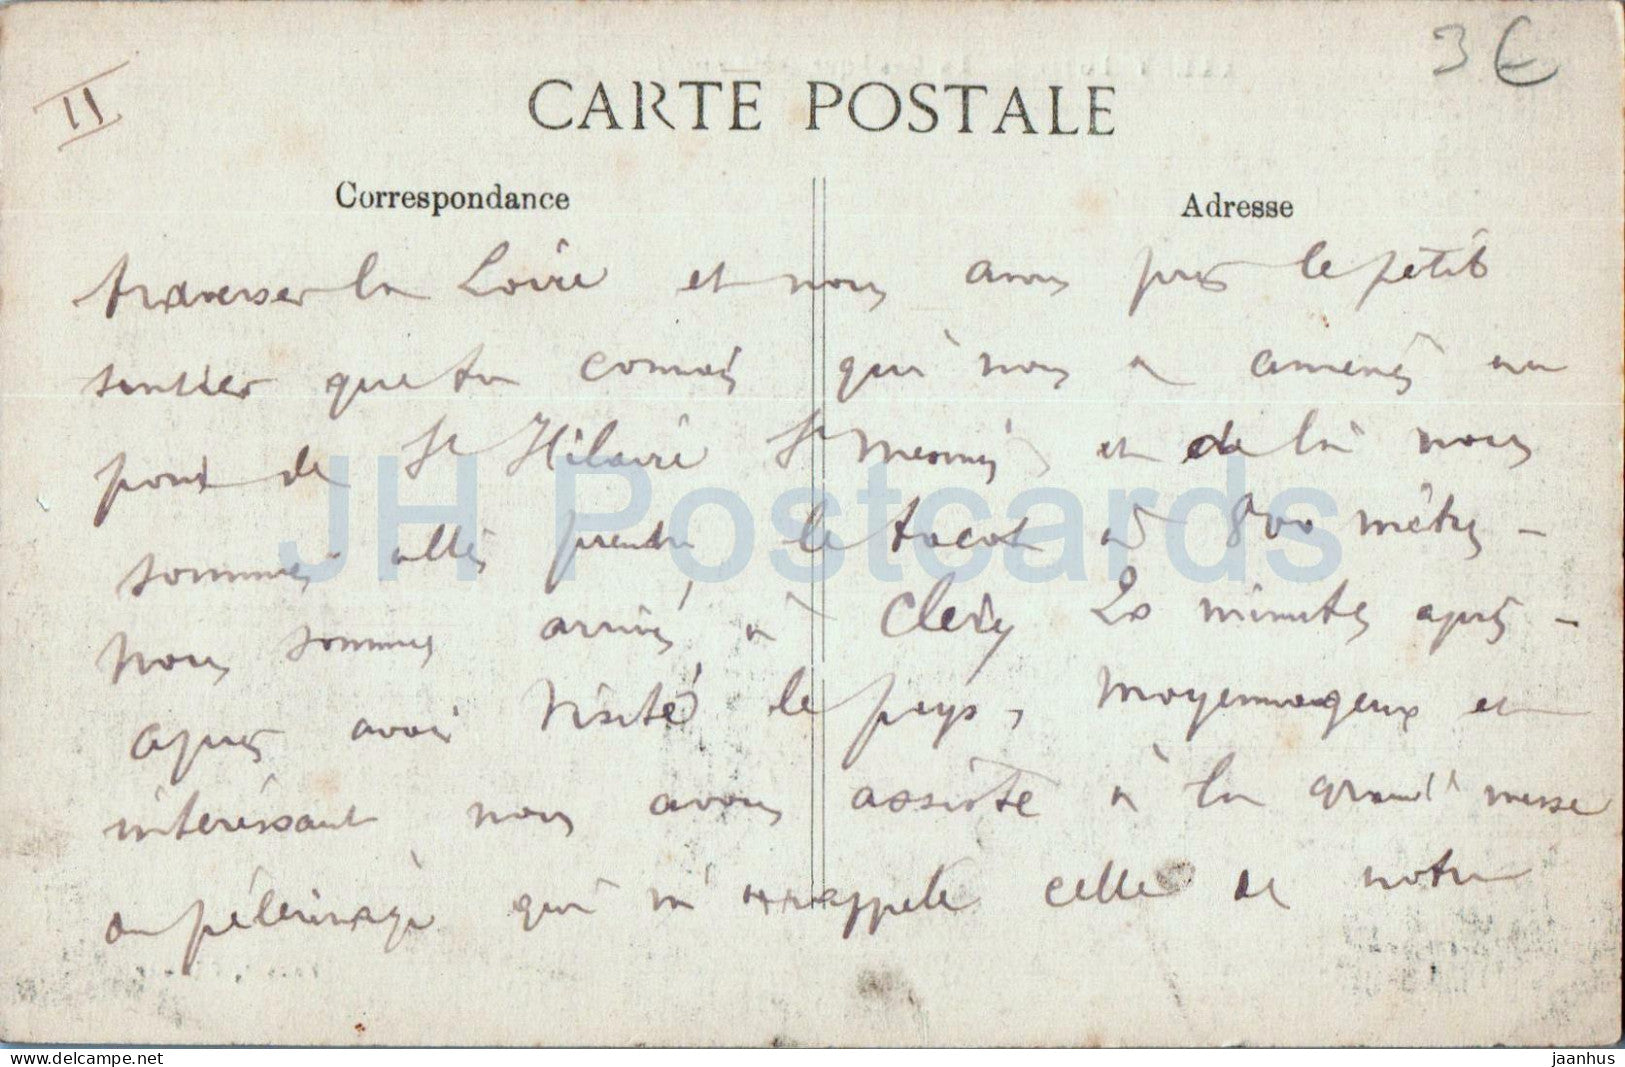 II
3 €
CARTE POSTALE
Correspondance
Adresse
traverser la Loire et nous avons pris le petit
sentier que tu connais qui nous a amenés au
pont de St Hilaire St Mesmin et de là nous
sommes allés prendre le tacot à 800 mètres -
nous sommes arrivés à Clery 20 minutes après -
après avoir visité le pays, moyennageux et
intéressant nous avons assisté à la grand' messe
au pélerinage qui m' rappelle celle de notre
JH Postcards
delcampe.net
jaanhus